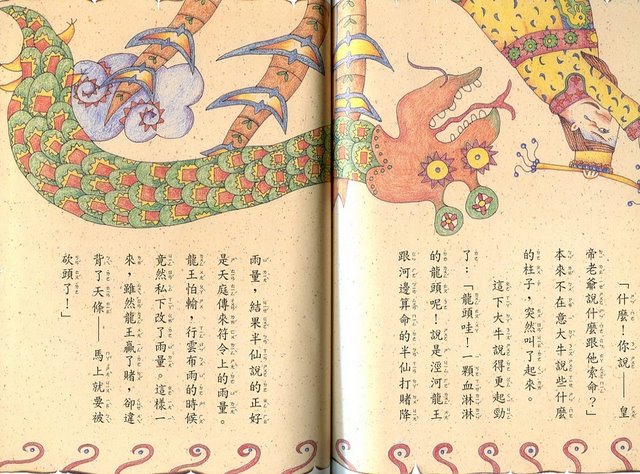 「什麼！你說——皇
帝老爺說什麼跟他索命？」
本來不在意大牛說些什麼
的柱子，突然叫了起來。
這下大牛說得更起勁
了：「龍頭哇！一顆血淋淋
的龍頭呢！說是涇河龍王
跟河邊算命的半仙打賭降
雨量，結果半仙說的正好
是天庭傳來符令上的雨量。
龍王怕輸，行雲布雨的時候
竟然私下改了雨量。這樣一
來，雖然龍王贏了賭，卻違
背了天條——馬上就要被
砍頭了！」